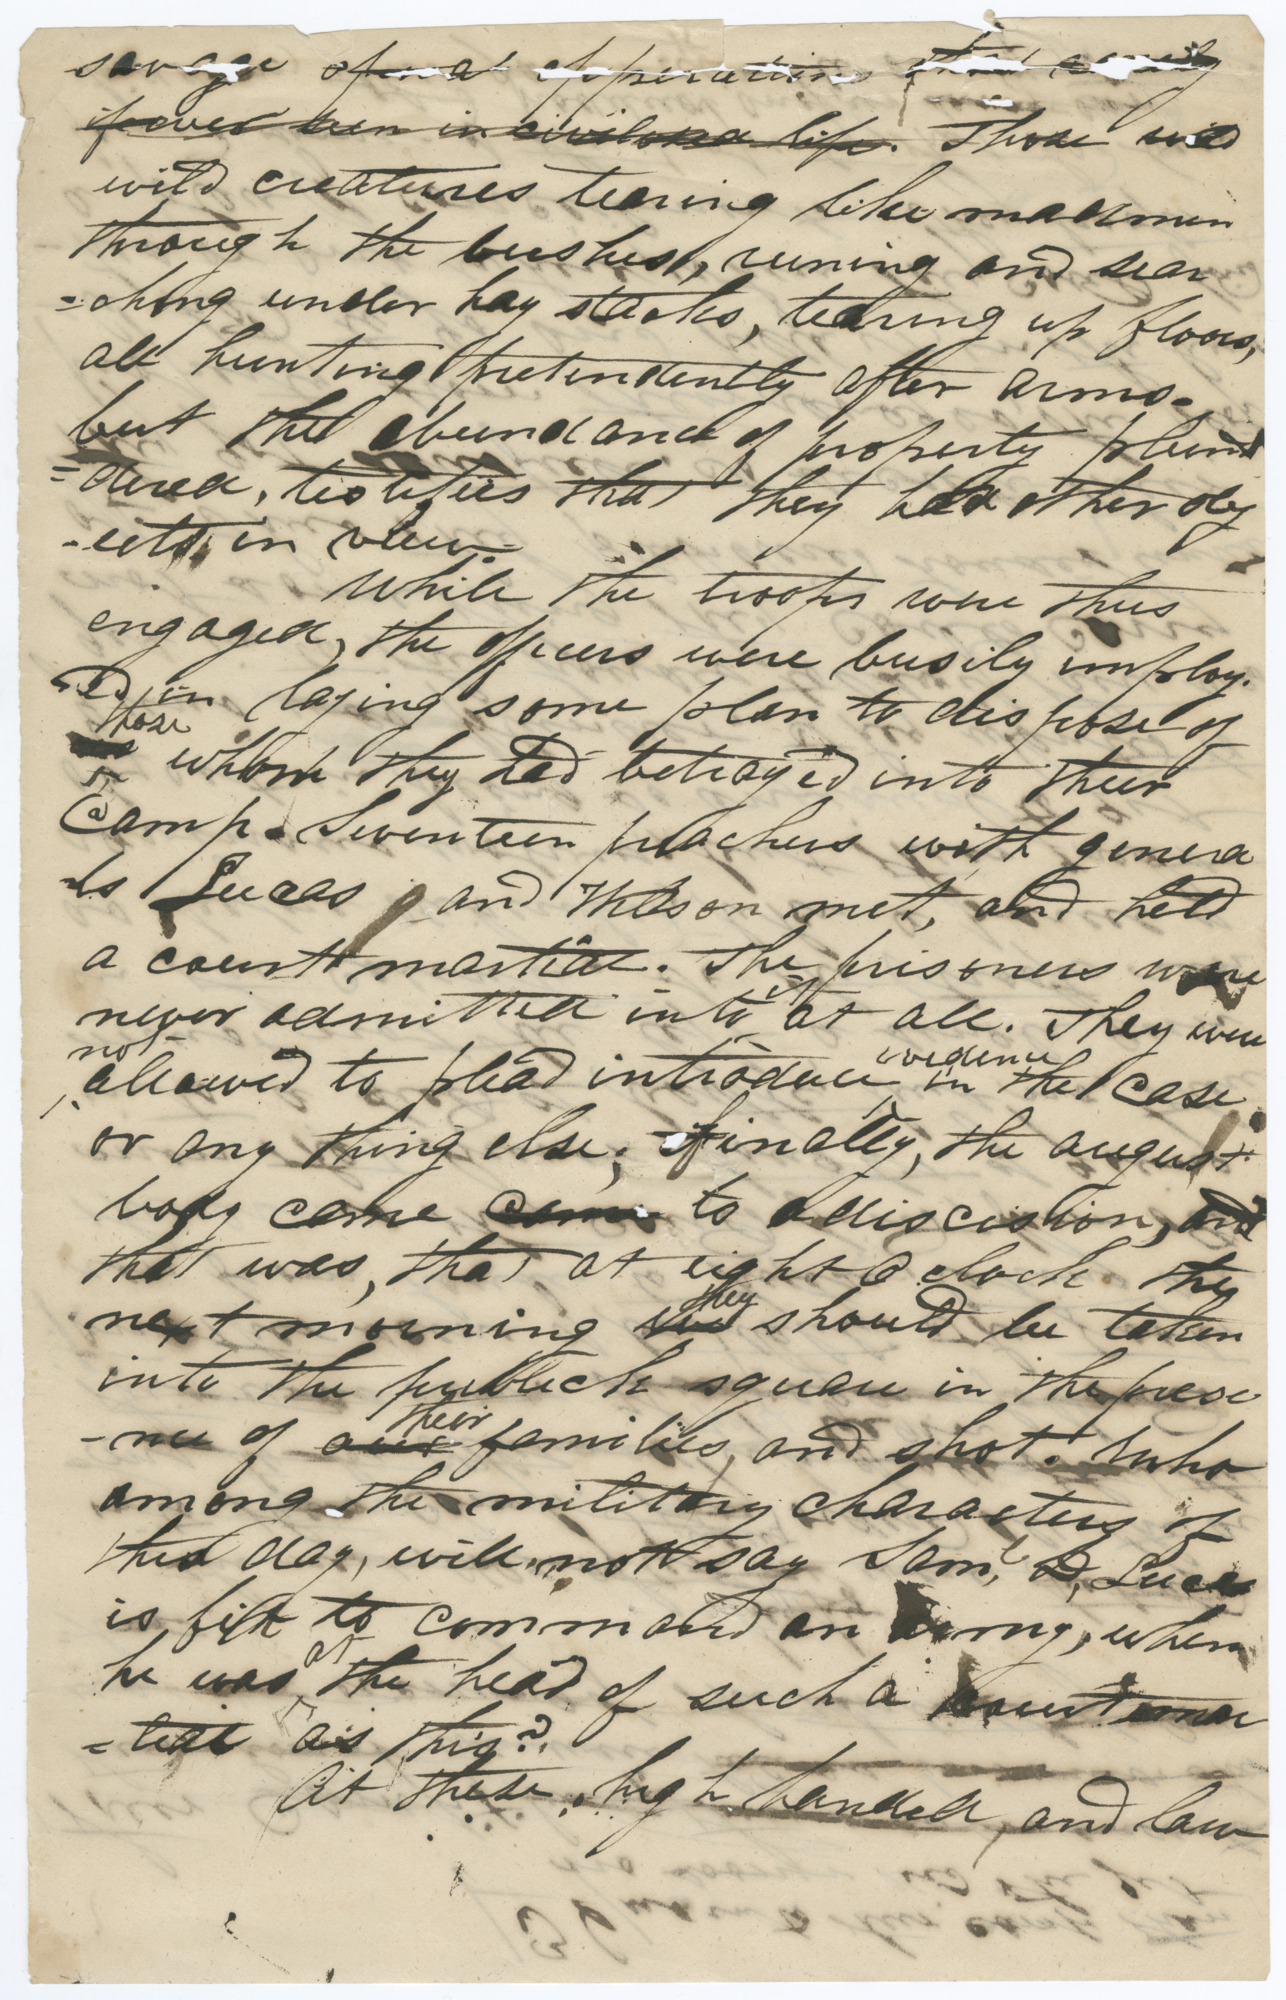 savage of opperations that
if ever seen in civilised life. Those wild
wild creatures tearing like madmen
through the bushes, runing and sear
=ching under hay stacks, tearing up floors,
all hunting pretendently after arms.
but the abundance of property plund
=dered, testifies that they had other obj
-ects in view.
While the troops were thus
engaged, the officers were busily imploy.
-ed in laying some plan to dispose of
those
whom they had betrayed into their
Camp. Seventeen preachers with genera
-ls Lucas and Wilson met, and held
a court martial. The prisoners were
never admitted into it at all. They were
not evidence
allowed to plead introduce in the case
or any thing else; finally, the august
body came came to a discission, and
that was, that at eight o clock the
they
next morning should be taken
into the publick square in the prese
their
-nce of our families, and shot. Who
among the military characters of
this day, will not say Saml, D, Lucas
is fit to command an army, when
at
he was the head of such a courtmar
=tial as this?
At these high handed, and law